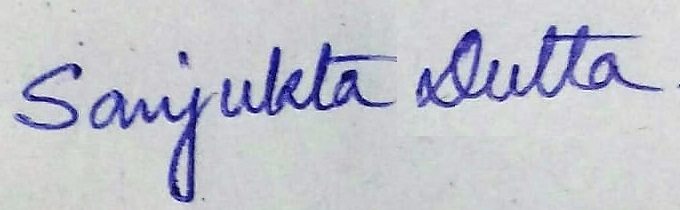 Sanjukta Dutta